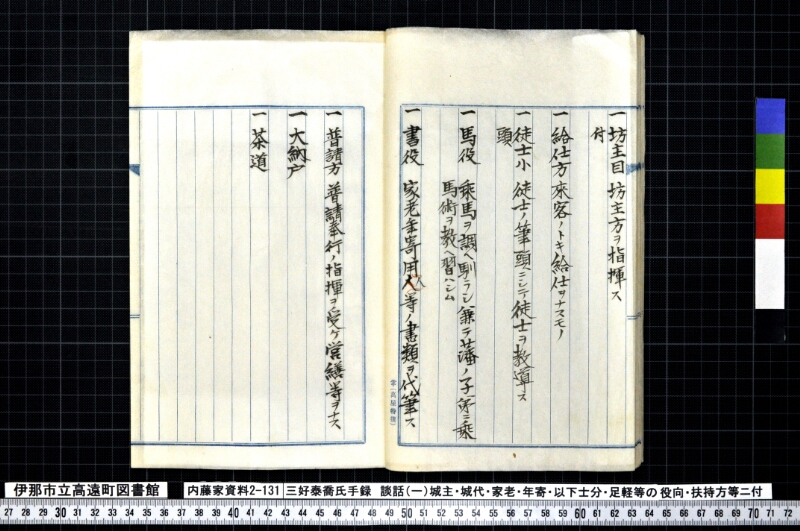 一坊主目 坊主方ヲ指揮ス
付
一給仕方 来客ノトキ給仕ヲナスモノ
一徒士小 徒士ノ筆頭ニシテ徒士ヲ教導ス
頭
一馬役 乗馬ヲ調ヘ馴ラシ兼テ藩ノ子弟ニ乗
馬術ヲ教習ハシム
一書役 家老年寄用人等ノ書類ヲ代筆ス
一普請方 普請奉行ノ指揮ヲ受ケ営繕等ヲナス
一大納戸
一茶道
伊那市立高遠町図書館
内藤家資料2-131 三好泰喬氏手録 談話(一)城主・城代・家老・年寄・以下士分・足軽等の役向・扶持方等ニ付
27 28 29 30 31 32 33 34 35 36 37 38 39 40 41 42 43 44 45 46 47 48 49 50 51 52 53 54 55 56 57 58 59 60 61 62 63 64 65 66 67 68 69 70 71 72